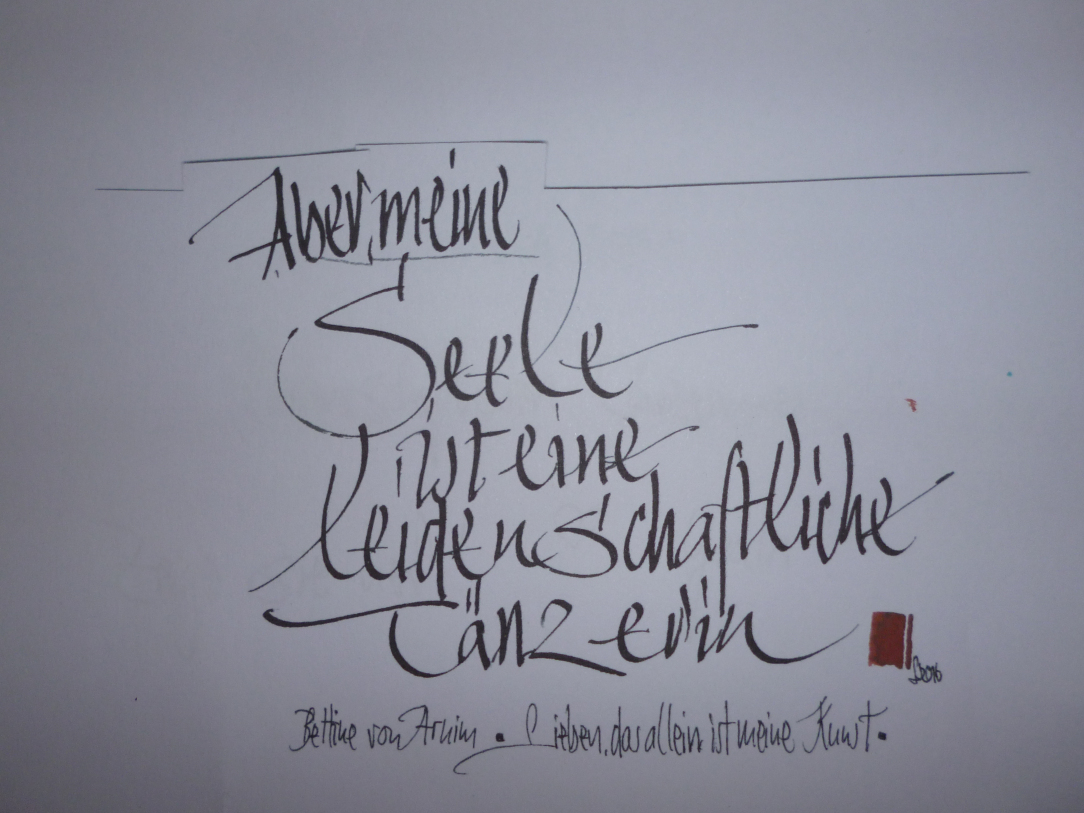 Aber meine
Seele
ist eine
leidenschaftliche
Tänzerin
Bettine von Arnim • Lieben, das allein ist meine Kunst •